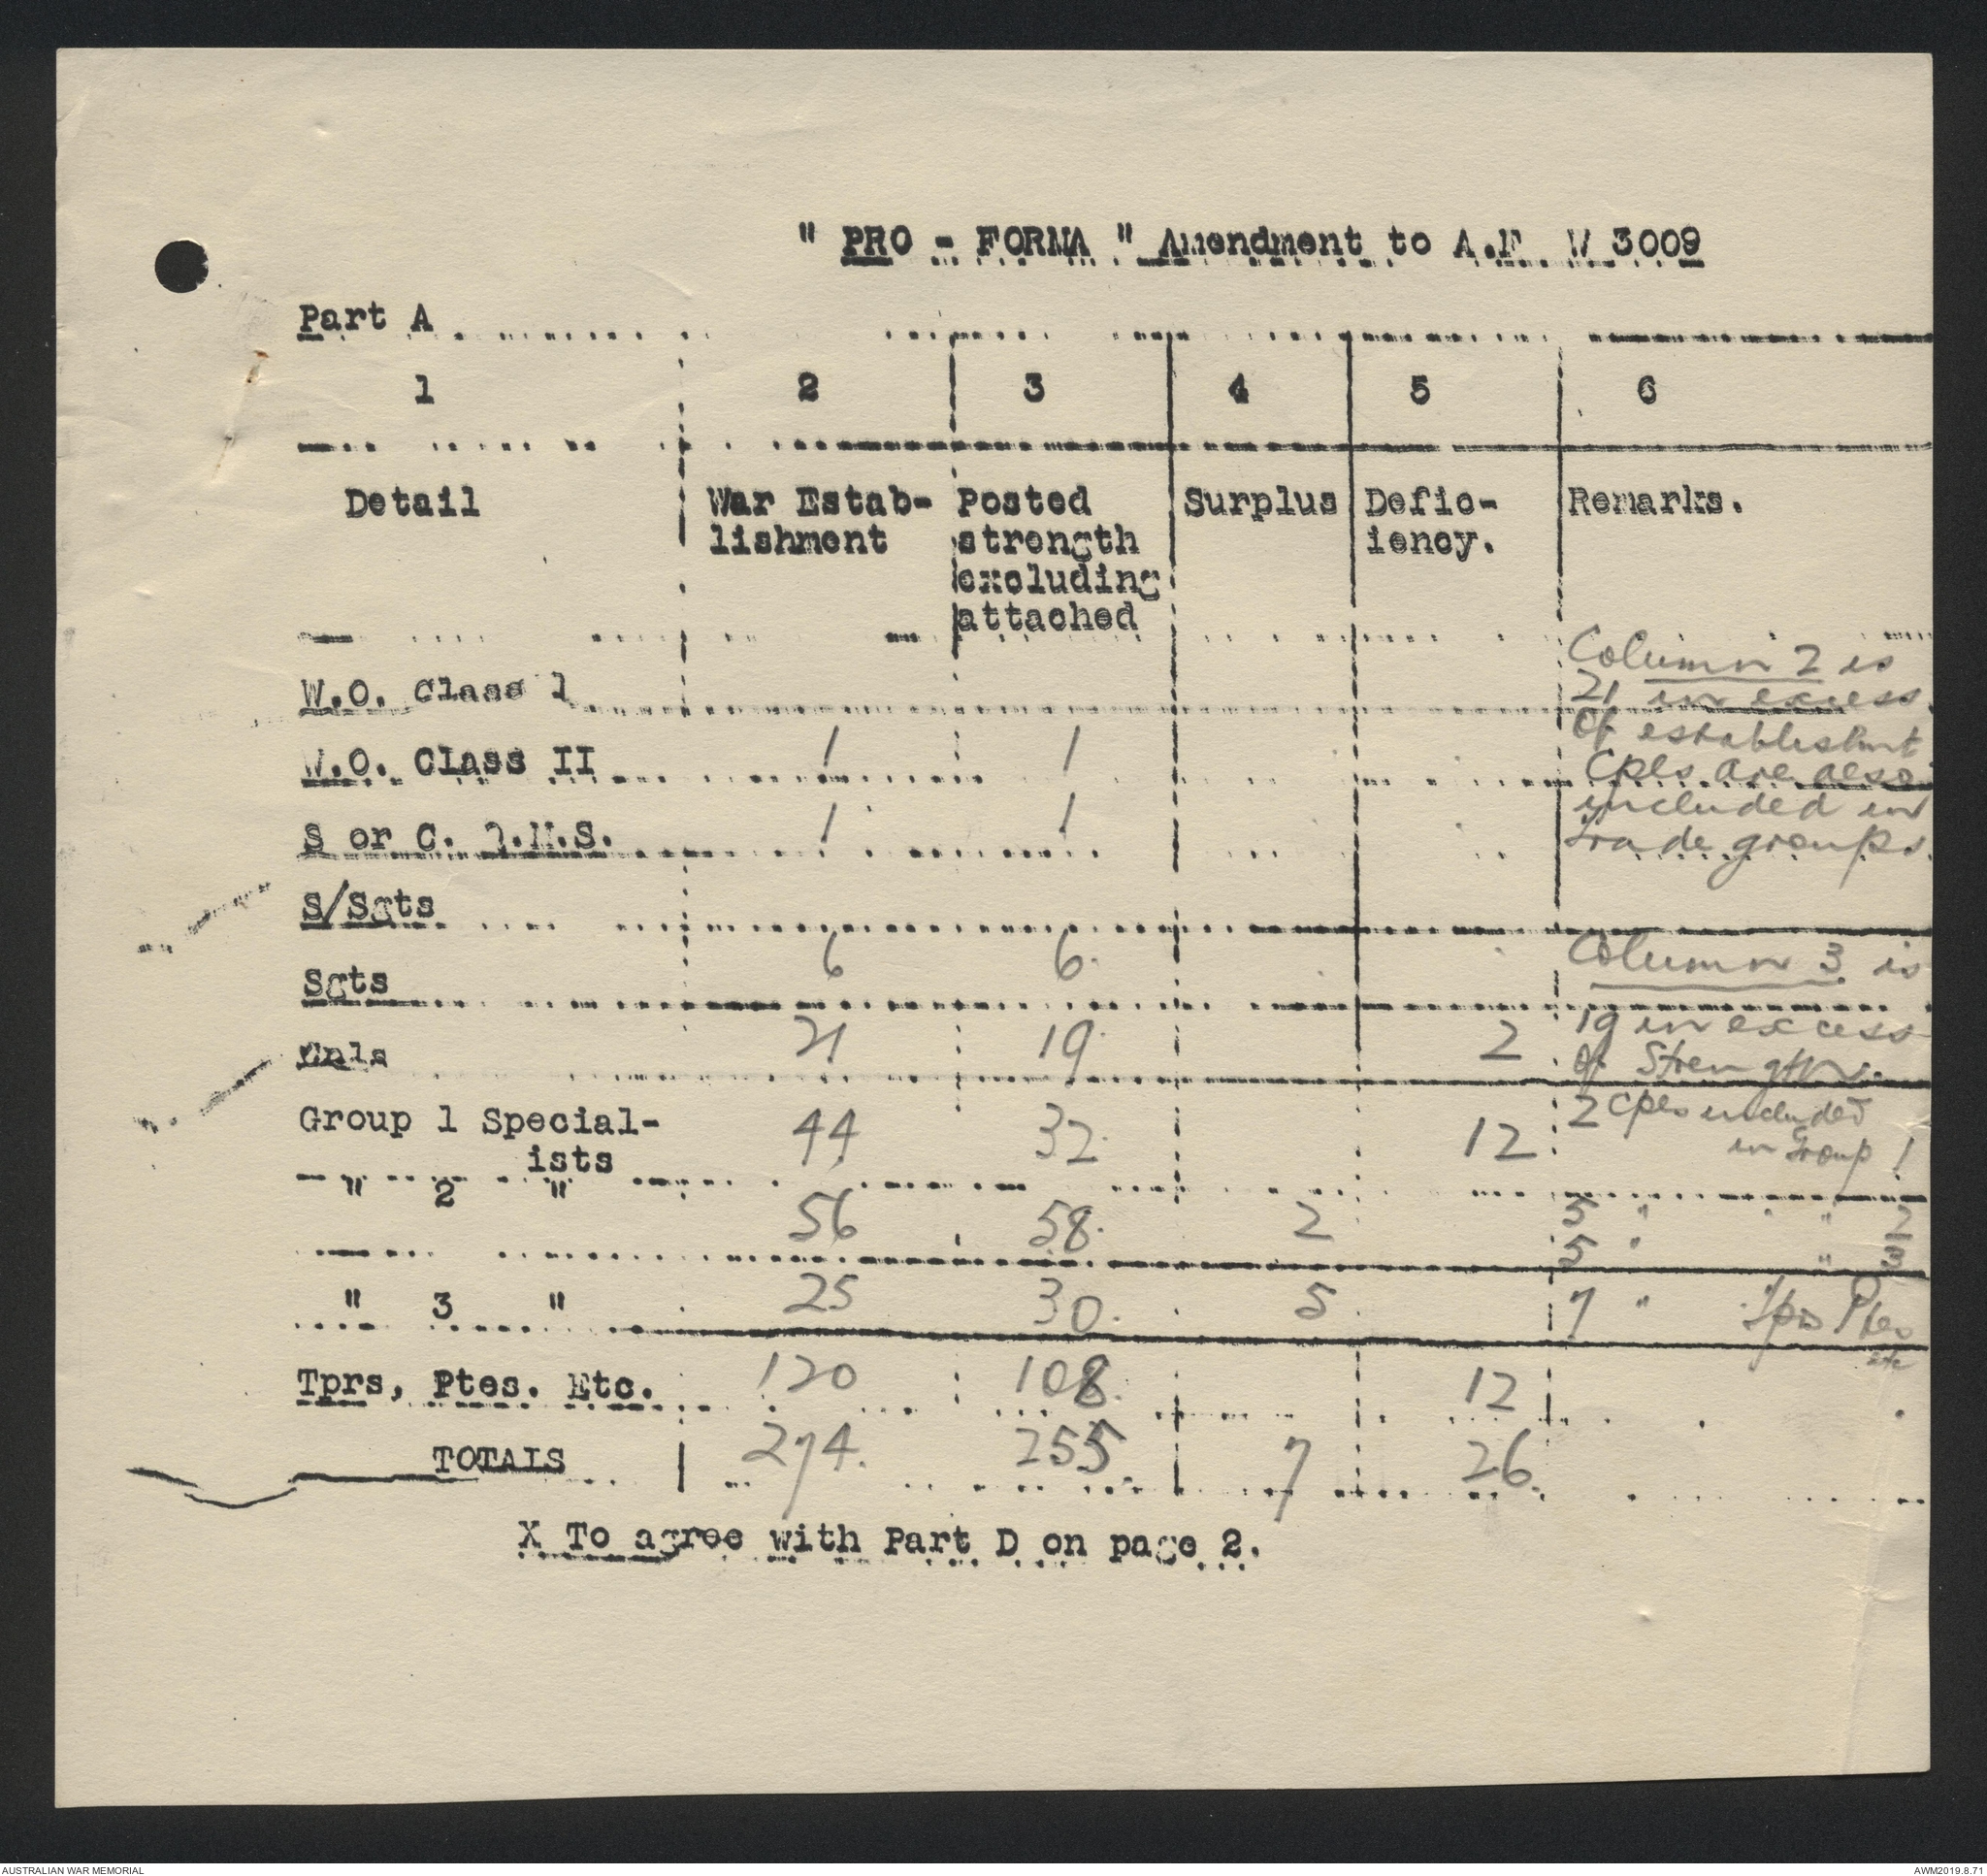 " PRO - FORMA " Amendment to A.F. W 3009
Part A
1 2 3 4 5 6
Detail War Estab- Posted Surplus Defic- Remarks.
lishment strength iency.
excluding
attached
Column 2 is
W.O. Class 1 21 in excess
of establishmt
W.O. Class II 1 1 Cpls are also
included in
S or C. Q.M.S. 1 1 trade groups.
S/Sgts
Sgts 6 6. Column 3 is
Cpls 21 19. 2 19 in excess
of Strength.
Group 1 Special- 44 32. 12 2 Cpls included
ists in Group 1
" 2 " 56 58. 2 5 " " " 2
5 " " 3
" 3 " 25 30. 5 7 " Tprs Ptes
etc
Tprs, Ptes. Etc. 120 108. 12
TOTALS 274. 255. 7 26.
X To agree with Part D on page 2.
AUSTRALIAN WAR MEMORIAL AWM2019.8.71